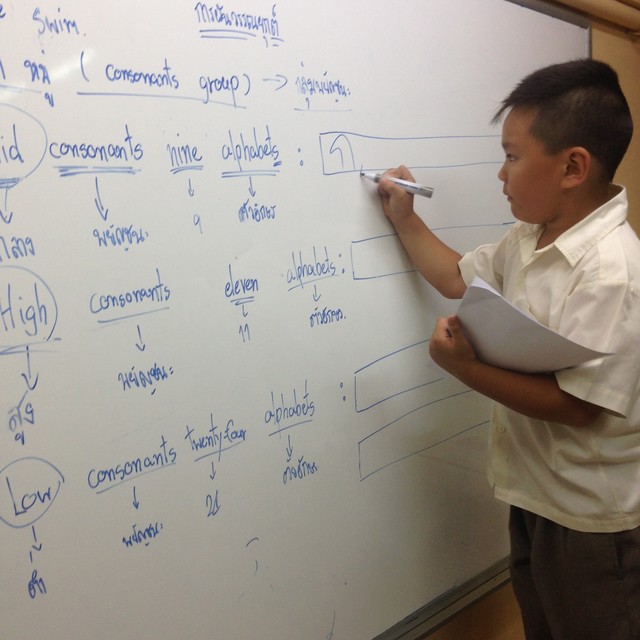 Swim. การผันวรรณยุกต์
(consonants group) →
id consonants nine alphabets : ก
กลาง พยัญชนะ ๙ ตัวอักษร
High consonants eleven alphabets :
สูง พยัญชนะ ๑๑ ตัวอักษร
Low consonants twenty-four alphabets :
ต่ำ พยัญชนะ ๒๔ ตัวอักษร